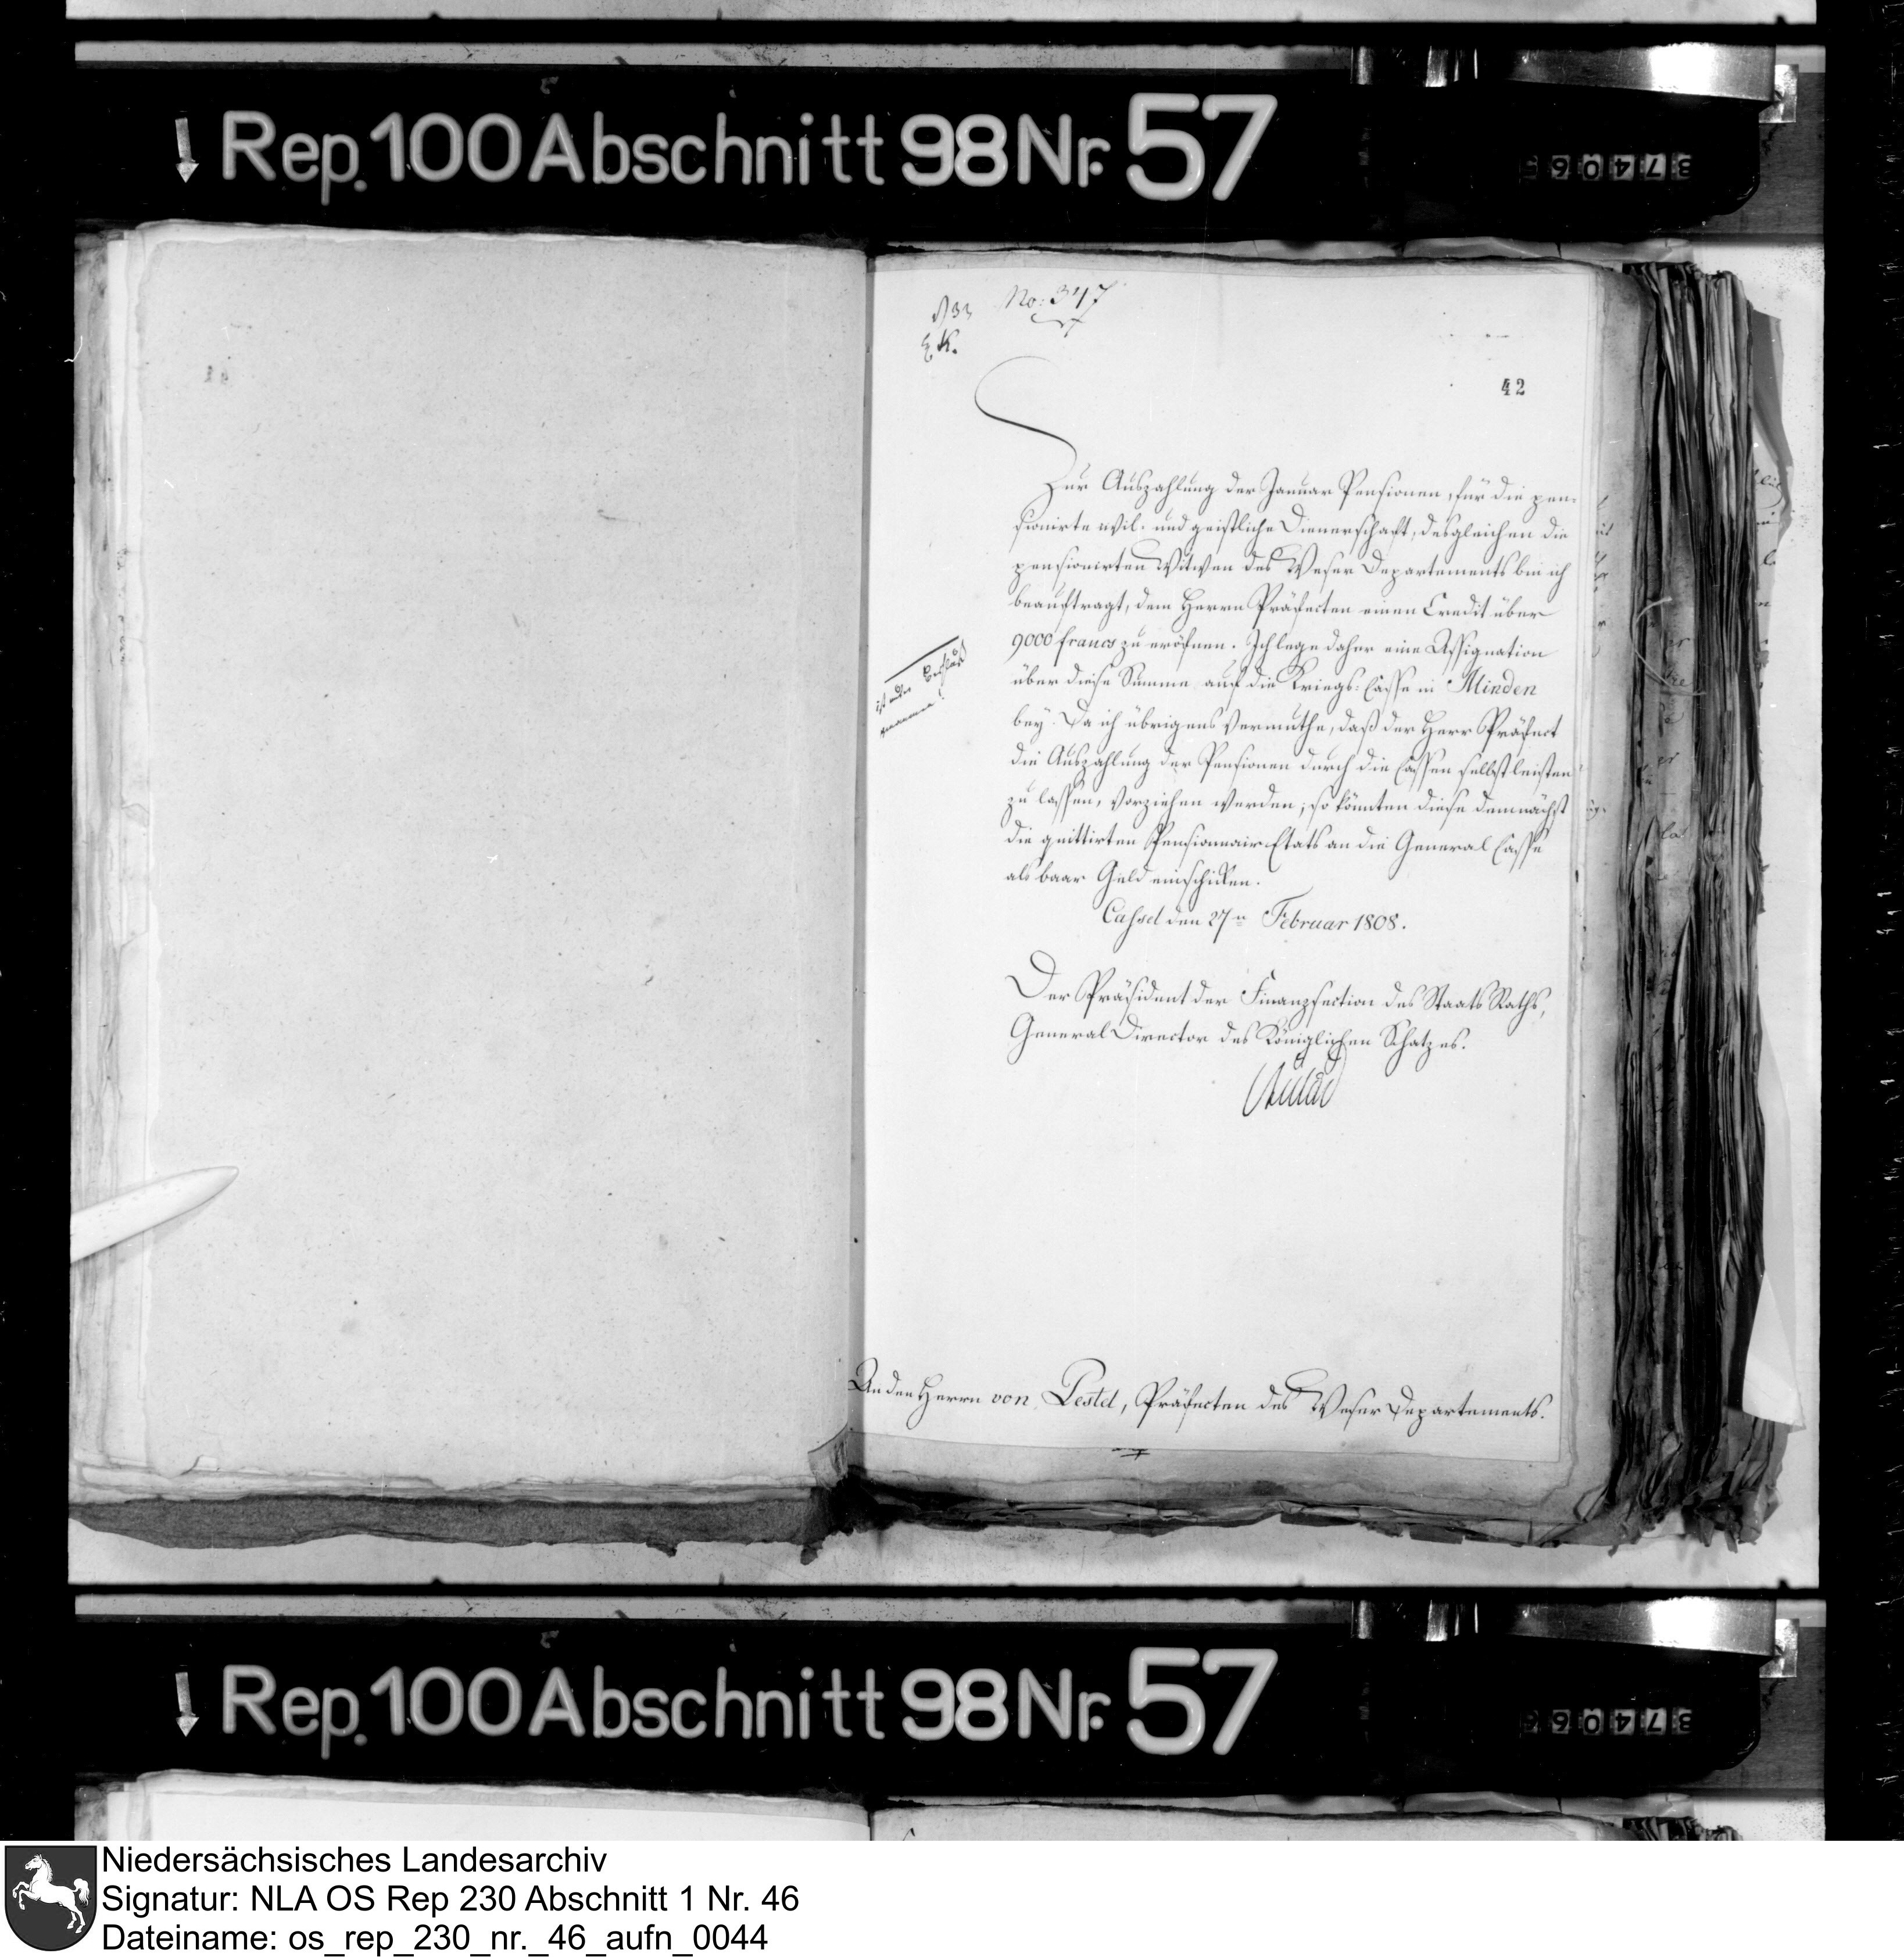 ↓ Rep. 100 Abschnitt 98 Nr. 57
374065
No: 347
42
Zur Auszahlung der Januar Pensionen, für die pen-
sionirte civil- und geistliche Dienerschaft, desgleichen die
pensionirten Witwen des Weser Departements bin ich
beauftragt, dem Herrn Präfecten einen Credit über
9000 francs zu eröfnen. Ich lege daher eine Assignation
über diese Summe auf die Kriegs-Casse in Minden
bey. Da ich übrigens vermuthe, daß der Herr Präfect
die Auszahlung der Pensionen durch die Cassen selbst leisten
zu lassen, vorziehen werden; so könnten diese demnächst
die quittirten Pensionair Etats an die General Casse
als baar Geld einschicken.
Cassel den 27n Februar 1808.
Der Präsident der Finanzsection des Staats Raths,
General Director des Königlichen Schatzes.
An den Herrn von Pestel, Präfecten des Weser Departements.
↓ Rep. 100 Abschnitt 98 Nr. 57
Niedersächsisches Landesarchiv
Signatur: NLA OS Rep 230 Abschnitt 1 Nr. 46
Dateiname: os_rep_230_nr._46_aufn_0044